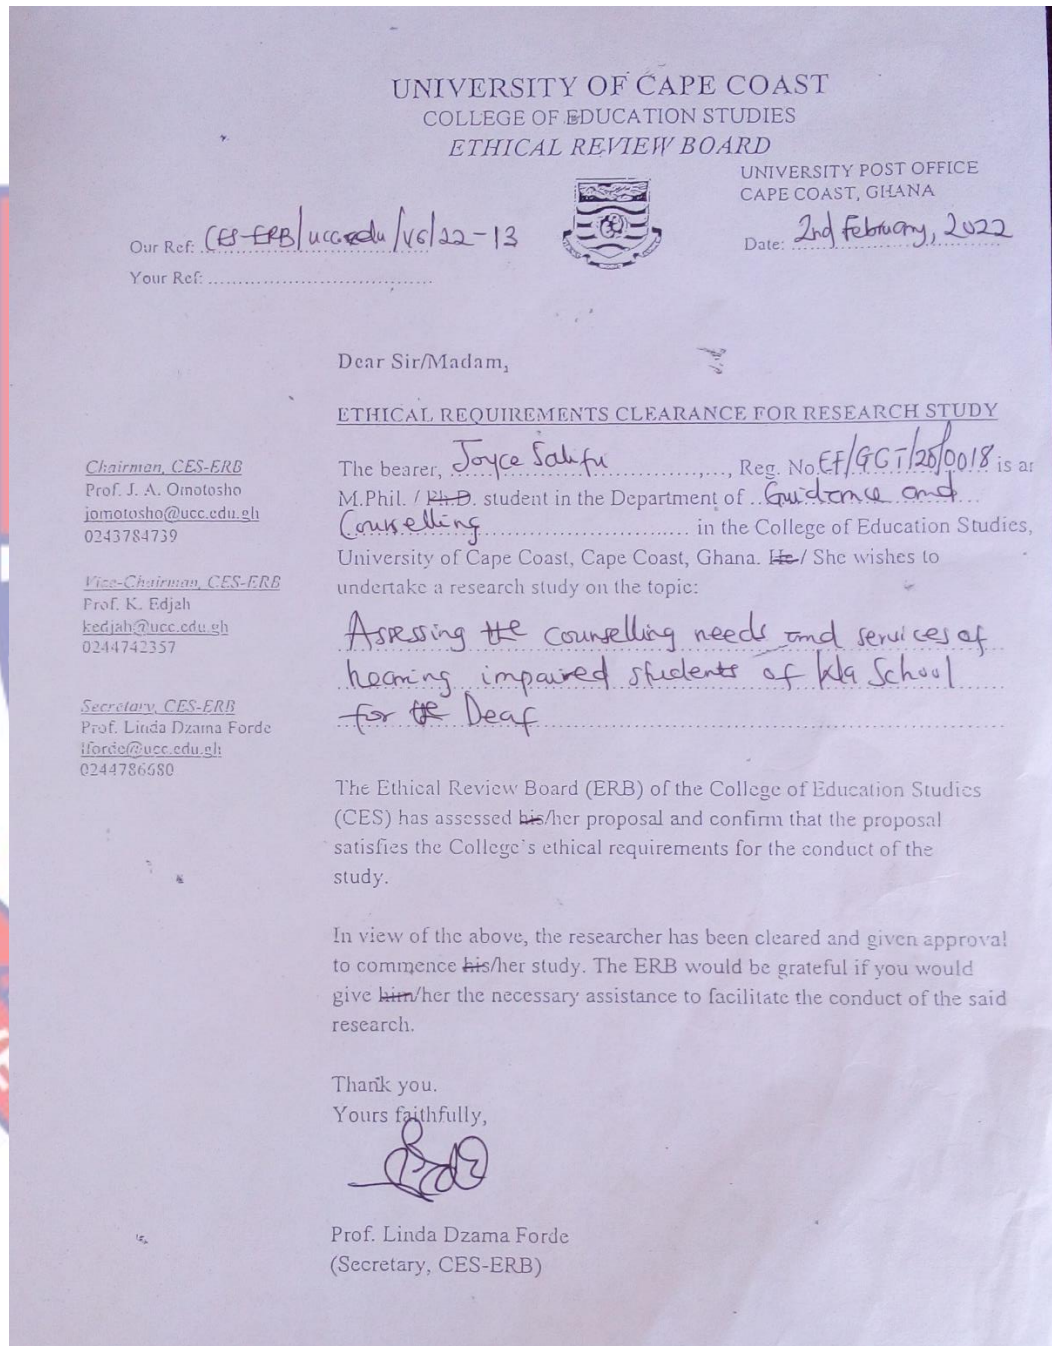 UNIVERSITY OF CAPE COAST
COLLEGE OF EDUCATION STUDIES
ETHICAL REVIEW BOARD
UNIVERSITY POST OFFICE
CAPE COAST, GHANA
Our Ref: CES-ERB/ucc.edu/V6/22-13
Date: 2nd February, 2022
Your Ref: ....................................
Dear Sir/Madam,
ETHICAL REQUIREMENTS CLEARANCE FOR RESEARCH STUDY
Chairman, CES-ERB
Prof. J. A. Omotosho
jomotosho@ucc.edu.gh
0243784739
Vice-Chairman, CES-ERB
Prof. K. Edjah
kedjah@ucc.edu.gh
0244742357
Secretary, CES-ERB
Prof. Linda Dzama Forde
lforde@ucc.edu.gh
0244786680
The bearer, Joyce Salifu, Reg. No. EF/GCT/20/0018 is an
M.Phil. / Ph.D. student in the Department of Guidance and
Counselling in the College of Education Studies,
University of Cape Coast, Cape Coast, Ghana. He / She wishes to
undertake a research study on the topic:
Assessing the counselling needs and services of
hearing impaired students of School
for the Deaf
The Ethical Review Board (ERB) of the College of Education Studies
(CES) has assessed his/her proposal and confirm that the proposal
satisfies the College's ethical requirements for the conduct of the
study.
In view of the above, the researcher has been cleared and given approval
to commence his/her study. The ERB would be grateful if you would
give him/her the necessary assistance to facilitate the conduct of the said
research.
Thank you.
Yours faithfully,
Prof. Linda Dzama Forde
(Secretary, CES-ERB)